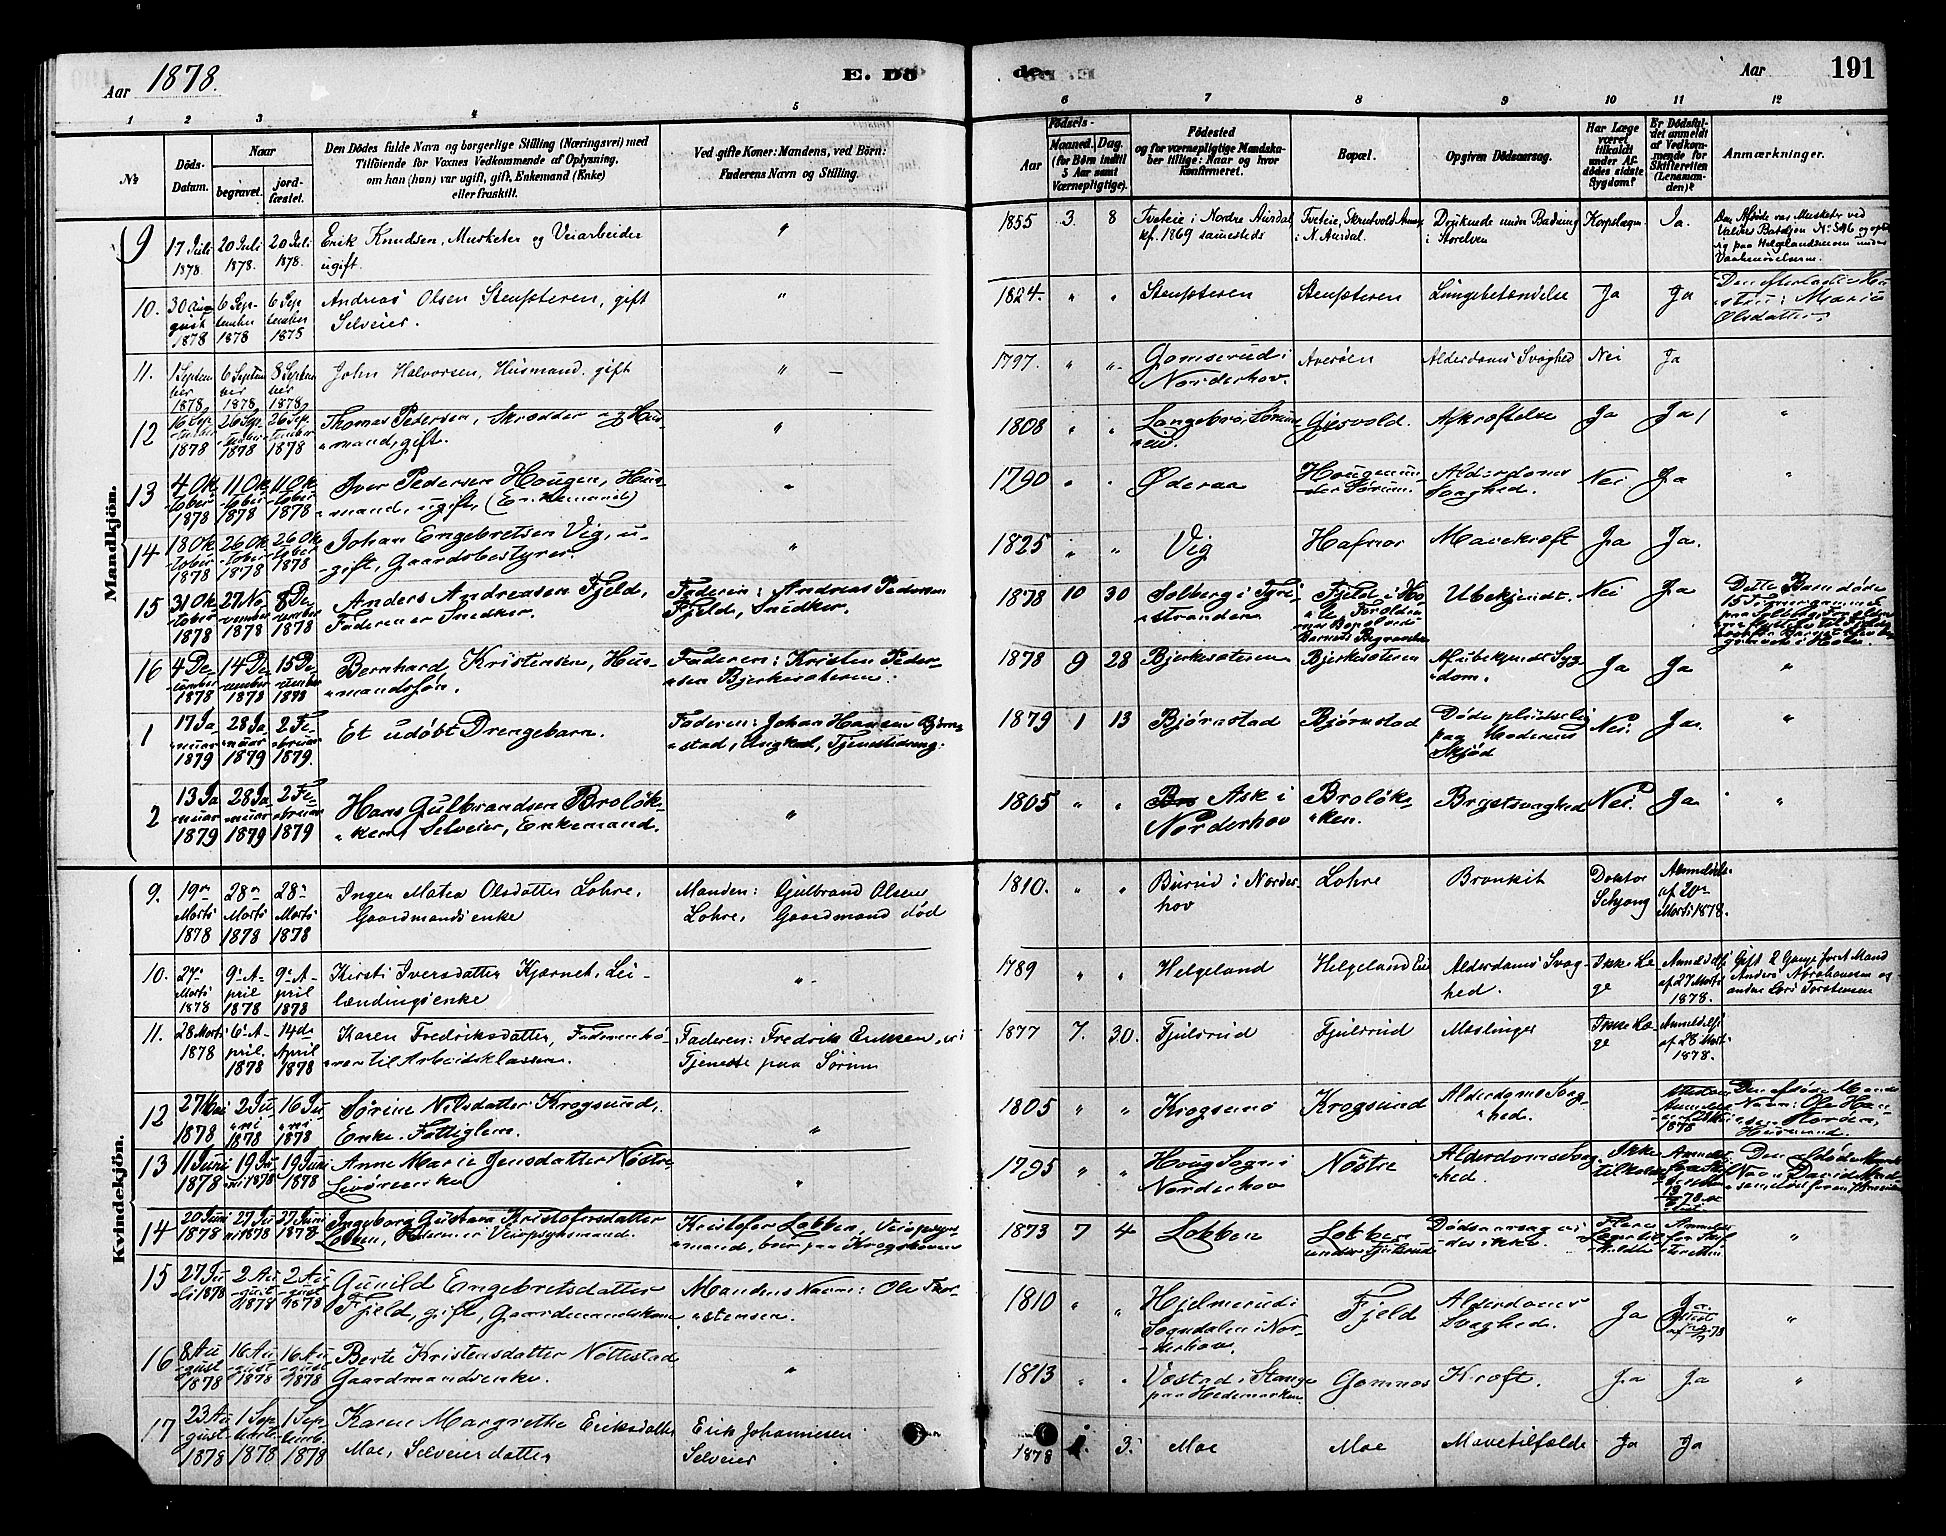 Aar 1878.
E. Dö
de.
Aar
191
1
2
3
4
5
6
7
8
9
10
11
12
No
Döds-Datum.
Naar
begravet.
jord-fæstet.
Den Dödes fulde Navn og borgerlige Stilling (Næringsvei) med
Tilföiende for Voxnes Vedkommende af Oplysning,
om han (hun) var ugift, gift, Enkemand (Enke)
eller fraskilt.
Ved gifte Koner: Mandens, ved Börn:
Faderens Navn og Stilling.
Födsels-
Aar
Maaned. Dag.
(for Börn indtil
5 Aar samt
Værnepligtige).
Födested
og for værnepligtige Mandska-
ber tillige: Naar og hvor
konfirmeret.
Bopæl.
Opgiven Dödsaarsag.
Har Læge
været
tilkaldt
under Af-
dödes sidste
Sygdom?
Er Dödsfal-
det anmeldt
af Vedkom-
mende for
Skifteretten
(Lensman-
den)?
Anmærkninger.
Mandkjön.
9 17 Juli 1878. 20 Juli 1878. 20 Juli 1878. Erik Knudsen, Musketer og Veiarbeider ugift. " 1855 3. 8 Tveteie i Nordre Aurdal kf. 1869 samesteds Tveteie, i N. Aurdal. Druknede under Badning i Storelven Ja. Den Afdöde var Musketer ved Valders Bataljon No 546 paa Helgelandsmoen under Vaabenövelserne.
10. 30 August 1878 6 September 1878 6 September 1878 Andreas Olsen Stensæteren, gift Selveier. " 1824. " " Stensæteren Stensæteren Lungebetændelse Ja Ja Den efterladte Hustru: Marie Olsdatter.
11. 1 September 1878 6 September 1878 8 September 1878 John Halvorsen, Husmand. gift " 1797. " " Gomserud i Norderhov. Averöen Alderdoms Svaghed Nei Ja
12 16 September 1878 26 September 1878 26 September 1878 Thomas Pedersen, Skrædder og Husmand, gift. " 1808 " " Gjesvold. Afkræftelse Ja Ja "
13 4 Oktober 1878 11 Oktober 1878 11 Oktober 1878 Iver Pedersen Hougen, Husmand, ugift, (Enkemand) " 1790 " " Øderaa Hougen under Sörum. Alderdoms Svaghed. Nei Ja "
14 18 Oktober 1878 26 Oktober 1878 26 Oktober 1878 Johan Engebretsen Vig, ugift, Gaardsbestyrer. " 1825 " " Vig Hafnor Mavekræft Ja Ja.
15 31 Oktober 1878 27 November 1878 8 December 1878 Anders Andreasen Fjeld, Faderen er Snedker. Faderen: Andreas Pedersen Fjeld, Snedker. 1878 10 30 Solberg i Tyristranden Fjeld i Hole, Forældrenes Bopæl ved Barnets Begravelse Ubekjendt. Nei Ja Dette Barn døde 15 Timer gammelt paa Solberg
16 4 December 1878 14 December 1878 15 December 1878 Bernhard Kristensen, Husmandssön. Faderen: Kristen Pedersen Bjerkesæteren. 1878 9 28 Bjerkesæteren Bjerkesæteren Af ubekjendt Sygdom. Ja Ja "
1 17 Januar 1879 28 Januar 1879 2 Februar 1879. Et udöbt Drengebarn. Faderen: Johan Hansen Björnstad, Ungkarl, Tjenestdreng. 1879 1 13 Björnstad Björnstad Döde pludselig paa Moderens Skjöd Nei. Ja. "
2 13 Januar 1879 28 Januar 1879 2 Februar 1879 Hans Gulbrandsen Brolökken, Selveier, Enkemand. " 1805 " " Ask i Norderhov Brolökken. Brystsvaghed Nei Ja "
Kvindekjön.
9. 19de Marts 1878 28de Marts 1878 28de Marts 1878 Ingen Matea Olsdatter Lohre, Gaardmandsenke Manden: Gulbrand Olsen Lohre, Gaardmand död 1810. " " Burud i Norderhov Lohre Bronkit Doktor Schjong Anmeldelse af 20de Marts 1878.
10. 27de Marts 1878 9de April 1878 9de April 1878 Kirsti Iversdatter Kjærnet, Leilændingsenke " 1789 " " Helgeland Helgeland Alderdoms Svaghed. Ikke Læge Anmeldelse af 27 Marts 1878. Gift 2 Gange förste Mand Anders Abrahamsen og andre Lars Torstensen
11. 28 Marts 1878 6te April. 1878 14de April 1878 Karen Fredriksdatter, Faderen hörer til Arbeidsklassen. Faderen: Fredrik Eriksen, i Tjeneste paa Sörum 1877 7. 30. Fjulsrud Fjulsrud Meslinger Ikke Læge Anmeldelse af 28 Marts 1878.
12 27 Mai 1878 2 Juni 1878 16 Juni 1878 Sörine Nilsdatter Krogsund, Enke. Fattiglem. " 1805 " " Krogsund Krogsund Alderdoms Svaghed. 1878 Den afdöde Mands Navn: Ole Husmand.
13 11 Juni 1878 19 Juni 1878 19 Juni 1878 Anne Marie Jensdatter Nöstre " 1795 " " Houg Sogn i Norderhov Nöstre Alderdoms Svaghed. Ikke tilkaldt Den afdöde Mands Navn: David
14 20 Juni 1878 27 Juni 1878 27 Juni 1878 Ingeborg Gustava Kristofersdatter Lobben, Faderen er Veiopsynsmand. Kristofer Lobben, Veiopsynsmand, bor paa Krogskoven 1873 7 4 Lobben Lobben under Fjulsrud Dödsaarsag ikke. "
15 27 Juli 1878 2 August 1878 2 August 1878 Gunild Engebretsdatter Fjeld, gift, Gaardmandskone Mandens Navn: Ole Thorstensen. 1810 " " Hjelmerud i Sogndalen i Norderhov. Fjeld Alderdoms Svaghed. Ja Ja "
16 8 August 1878 16 August 1878 16 August 1878 Berte Kristensdatter Nöttestad Gaardmandsenke. " 1813 " " Væstad i Stange paa Hedemarken Gomnæs Kræft. Ja Ja "
17 23 August 1878 1 Septemb. 1878 1 Septemb. 1878 Karen Margrethe Eriksdatter Moe, Selveierdatter Erik Johannesen Selveier 1878 3. Moe Moe Mavetilfælde Ja Ja